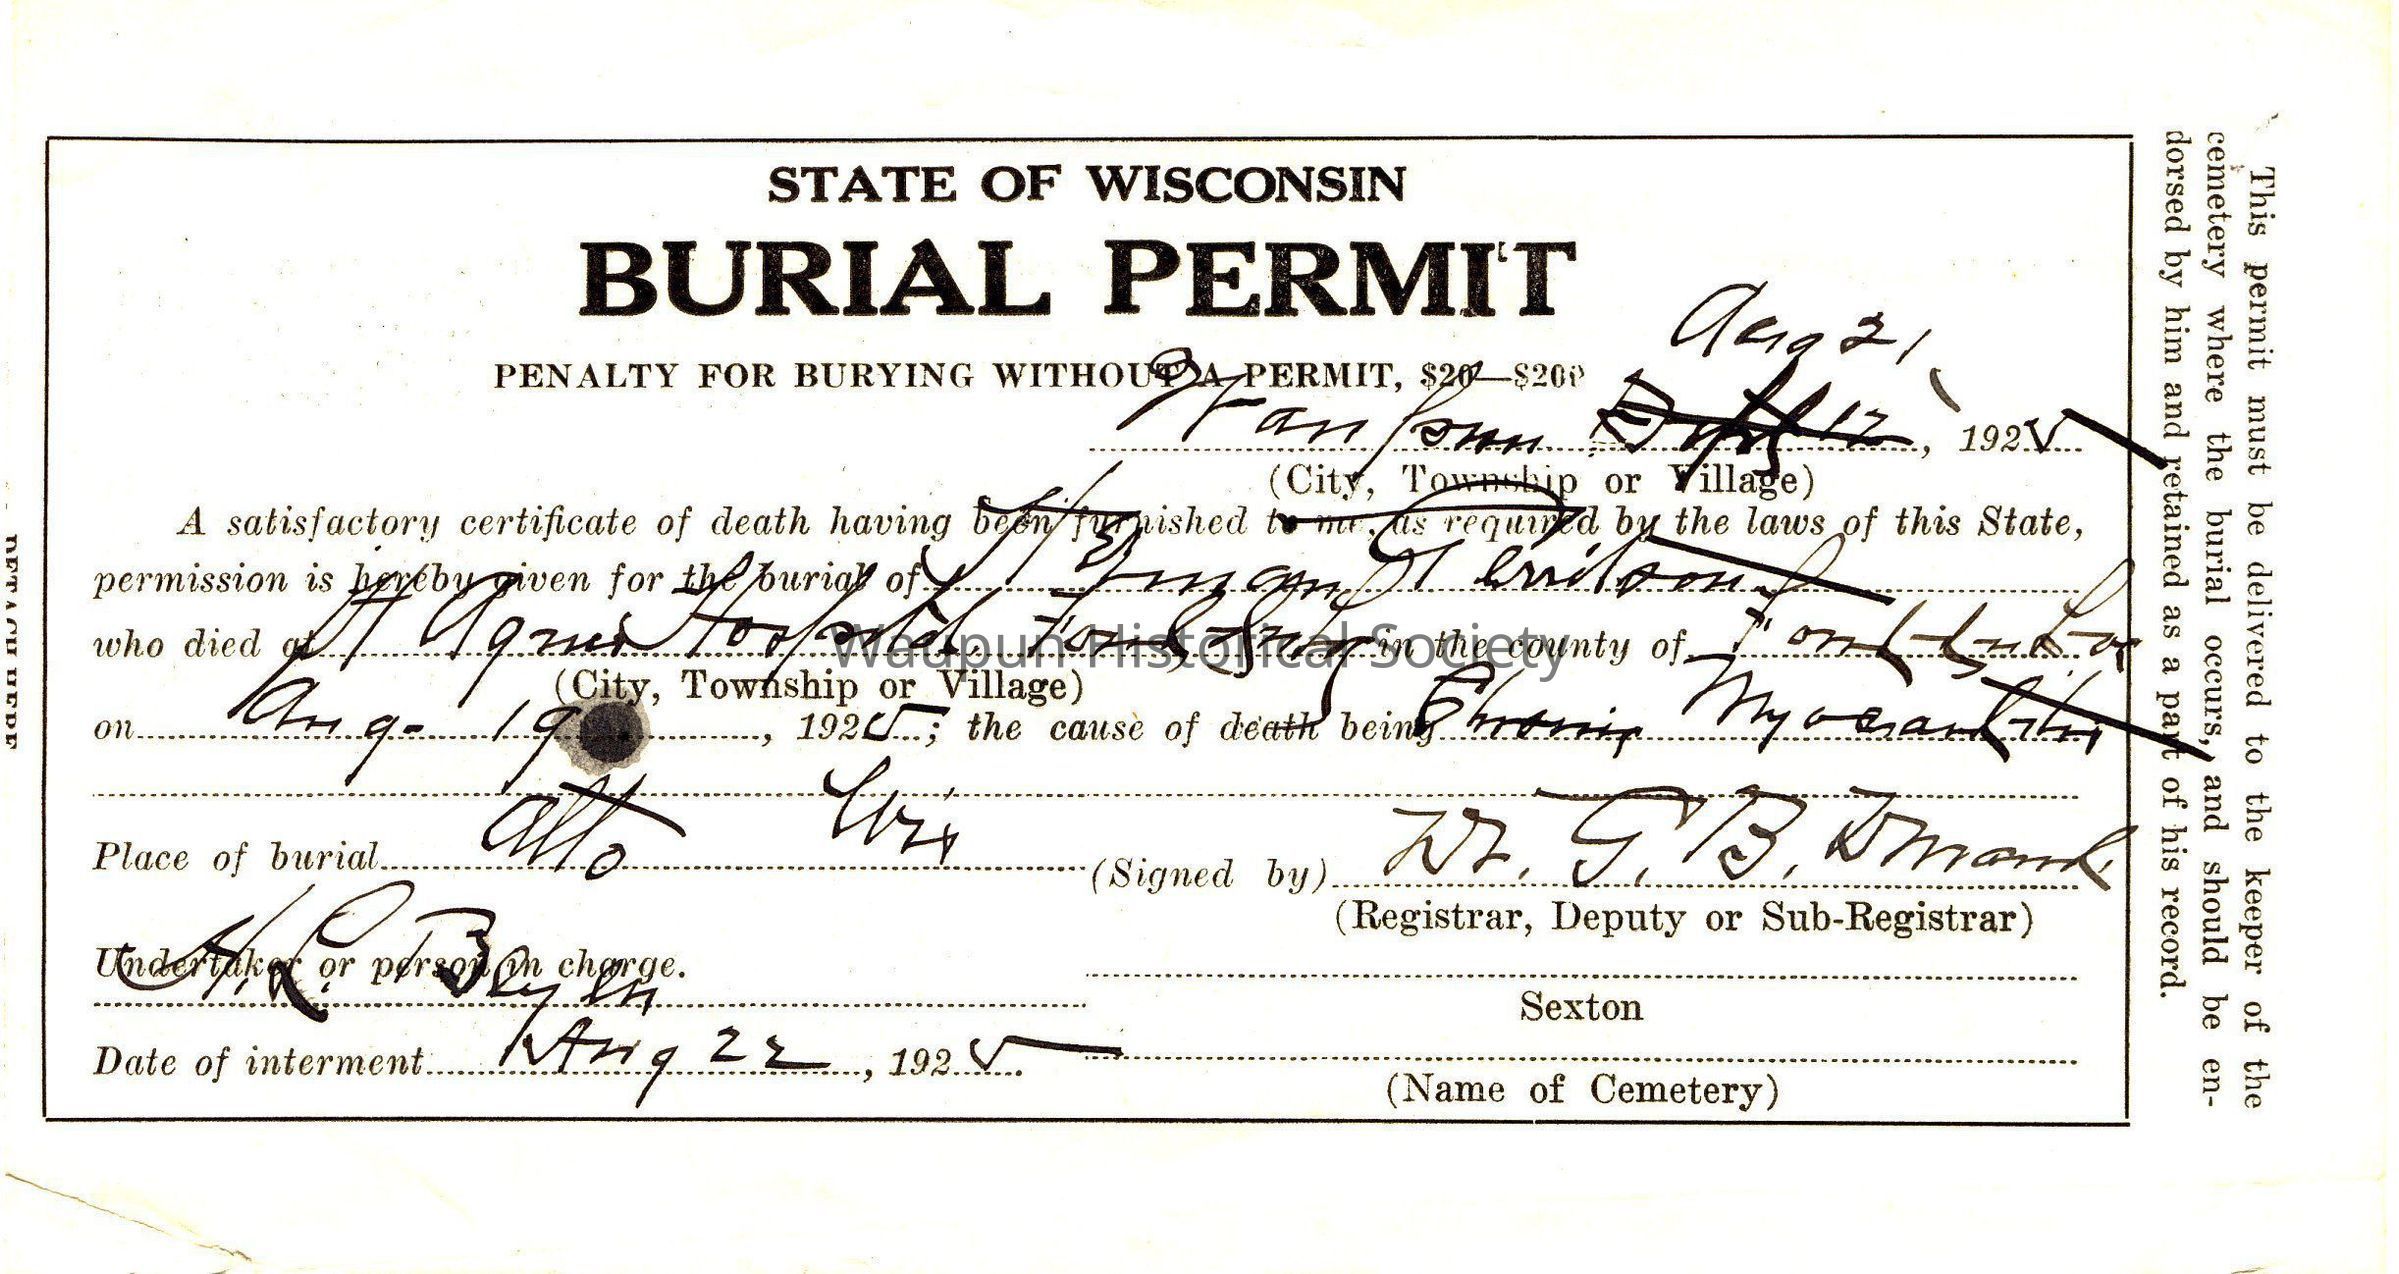 STATE OF WISCONSIN
BURIAL PERMIT
PENALTY FOR BURYING WITHOUT A PERMIT, $20—$200
Aug 21
Waupun Sept 12, 1925
(City, Township or Village)
A satisfactory certificate of death having been furnished to me, as required by the laws of this State,
permission is hereby given for the burial of
who died at St Agnes Hospital, Fond du Lac in the county of Fond du Lac
(City, Township or Village)
on Aug- 19, 1925; the cause of death being Chronic Myocarditis
Place of burial Alto Wis
(Signed by) Dr. G. B.
(Registrar, Deputy or Sub-Registrar)
Undertaker or person in charge.
H. L.
Sexton
Date of interment Aug 22, 1925
(Name of Cemetery)
This permit must be delivered to the keeper of the
cemetery where the burial occurs, and should be en-
dorsed by him and retained as a part of his record.
DETACH HERE
Waupun Historical Society